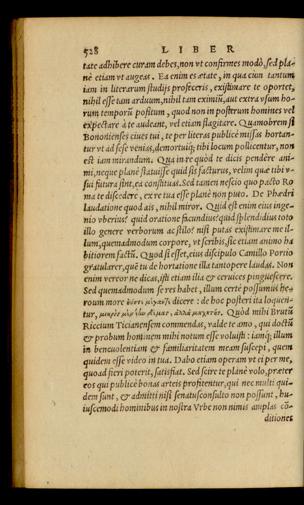 528 LIBER
tate adhibere curam debes, non vt confirmes modò, sed pla-
nè etiam vt augeas. Ea enim es ætate, in qua cùm tantum
iam in literarum studijs profeceris, existimare te oportet,
nihil esse tam arduum, nihil tam eximiũ, aut extra vsum ho-
rum temporũ positum, quod non in posterum homines vel
expectare à te audeant, vel etiam flagitare. Quamobrem si
Bononienses ciues tui, te per literas publicè missas hortan-
tur vt ad sese venias, demortuiq; tibi locum pollicentur, non
est iam mirandum. Qua in re quòd te dicis pendère ani-
mi, neque planè statuisse quid sis facturus, velim quæ tibi v-
sui futura sint, ea constituas. Sed tamen nescio quo pacto Ro
ma te discedere, ex re tua esse planè non puto. De Phædri
laudatione quod ais, nihil miror. Quid est enim eius inge-
nio vberius? quid oratione facundius? quid splendidius toto
illo genere verborum ac stilo? nisi putas existimare me il-
lum, quemadmodum corpore, vt scribis, sic etiam animo ha
bitiorem factũ. Quod si esset, eius discipulo Camillo Portio
gratularer, què tu de hortatione illa tantopere laudas. Non
enim vereor ne dicas, isti etiam illa & ceruices pinguescere.
Sed quemadmodum se res habet, illum certè possumus he-
roum more dicere: de hoc posteri ita loquen-
tur, Quòd mihi Brutũ
Riccium Ticianensem commendas, valde te amo, qui doctũ
& probum hominem mihi notum esse voluisti: iamq; illum
in beneuolentiam & familiaritatem meam suscepi, quem
quidem esse video in tua. Dabo etiam operam vt ei per me,
quoad fieri poterit, satisfiat. Sed scire te planè volo, præter
eos qui publicè bonas arteis profitentur, qui nec multi qui-
dem sunt, & admitti nisi senatusconsulto non possunt, hu-
iuscemodi hominibus in nostra Vrbe non nimis amplas cõ-
ditiones